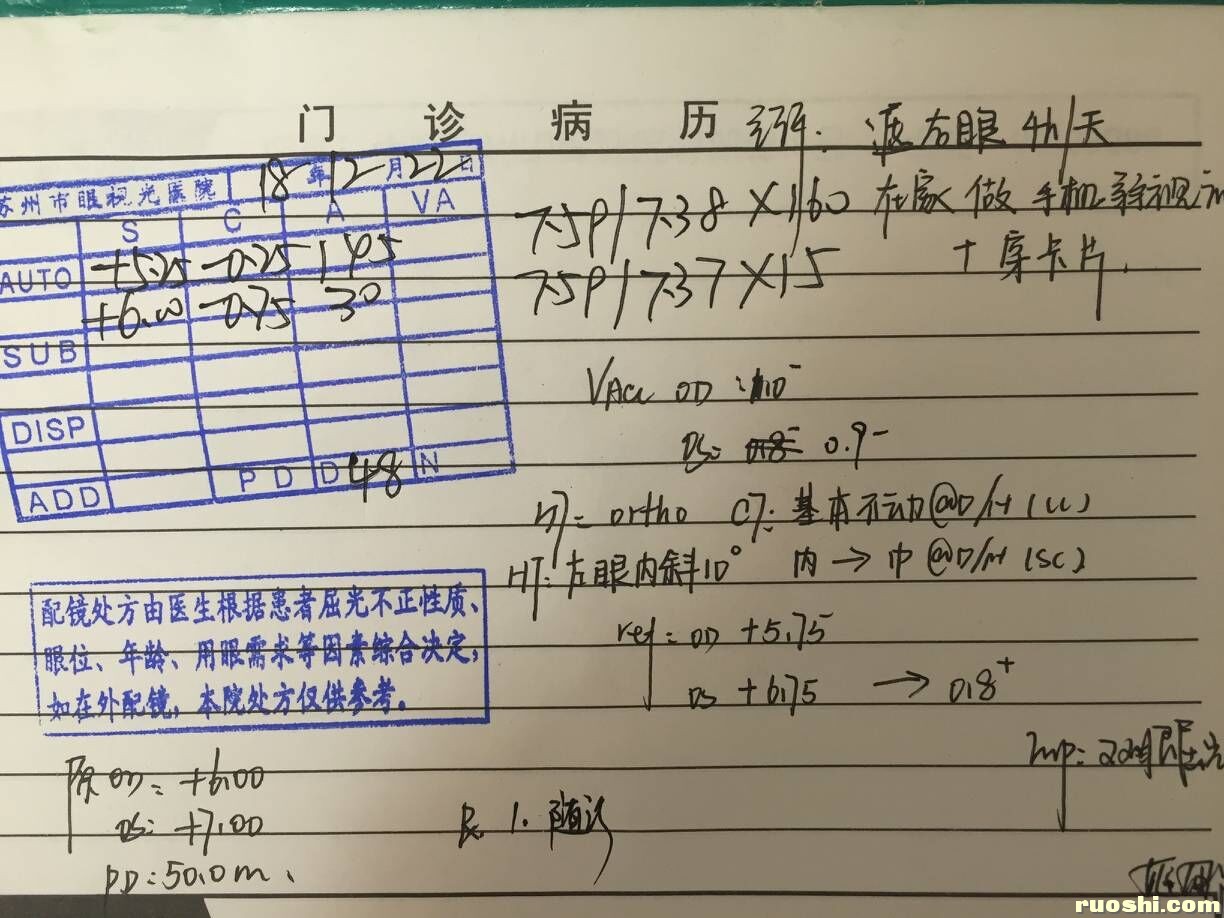 门 诊 病 历
遮右眼 4h/天
苏州市眼视光医院 18年12月22日
S C A VA
AUTO +5.25 -0.25 145
+6.00 -0.75 30
SUB
DISP
ADD PD D48 N
7.59/7.38×160 在家做手机
7.59/7.37×15 +穿卡片.
VAcc OD: 1.0⁻
OS: 0.8⁻ 0.9⁻
= ortho CT: 基本不动@D/N (cc)
HT: 左眼内斜10° 内→中@D/N (SC)
配镜处方由医生根据患者屈光不正性质、
眼位、年龄、用眼需求等因素综合决定,
如在外配镜,本院处方仅供参考。
ref: OD +5.75
OS +6.75 → 0.8⁺
Imp:
原 OD: +6.00
OS: +7.00
PD: 50.0m
Rx 1. 随访
ruoshi.com